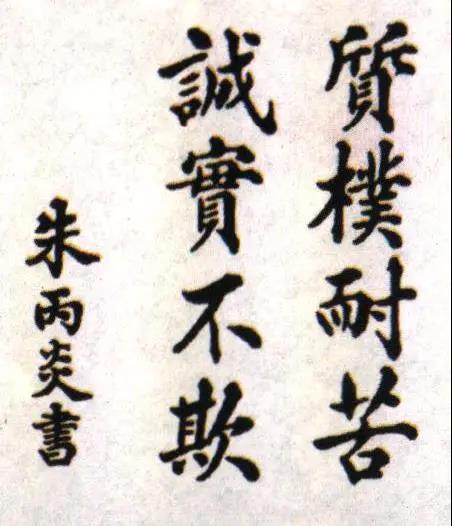 質樸耐苦
誠實不欺
朱丙炎書